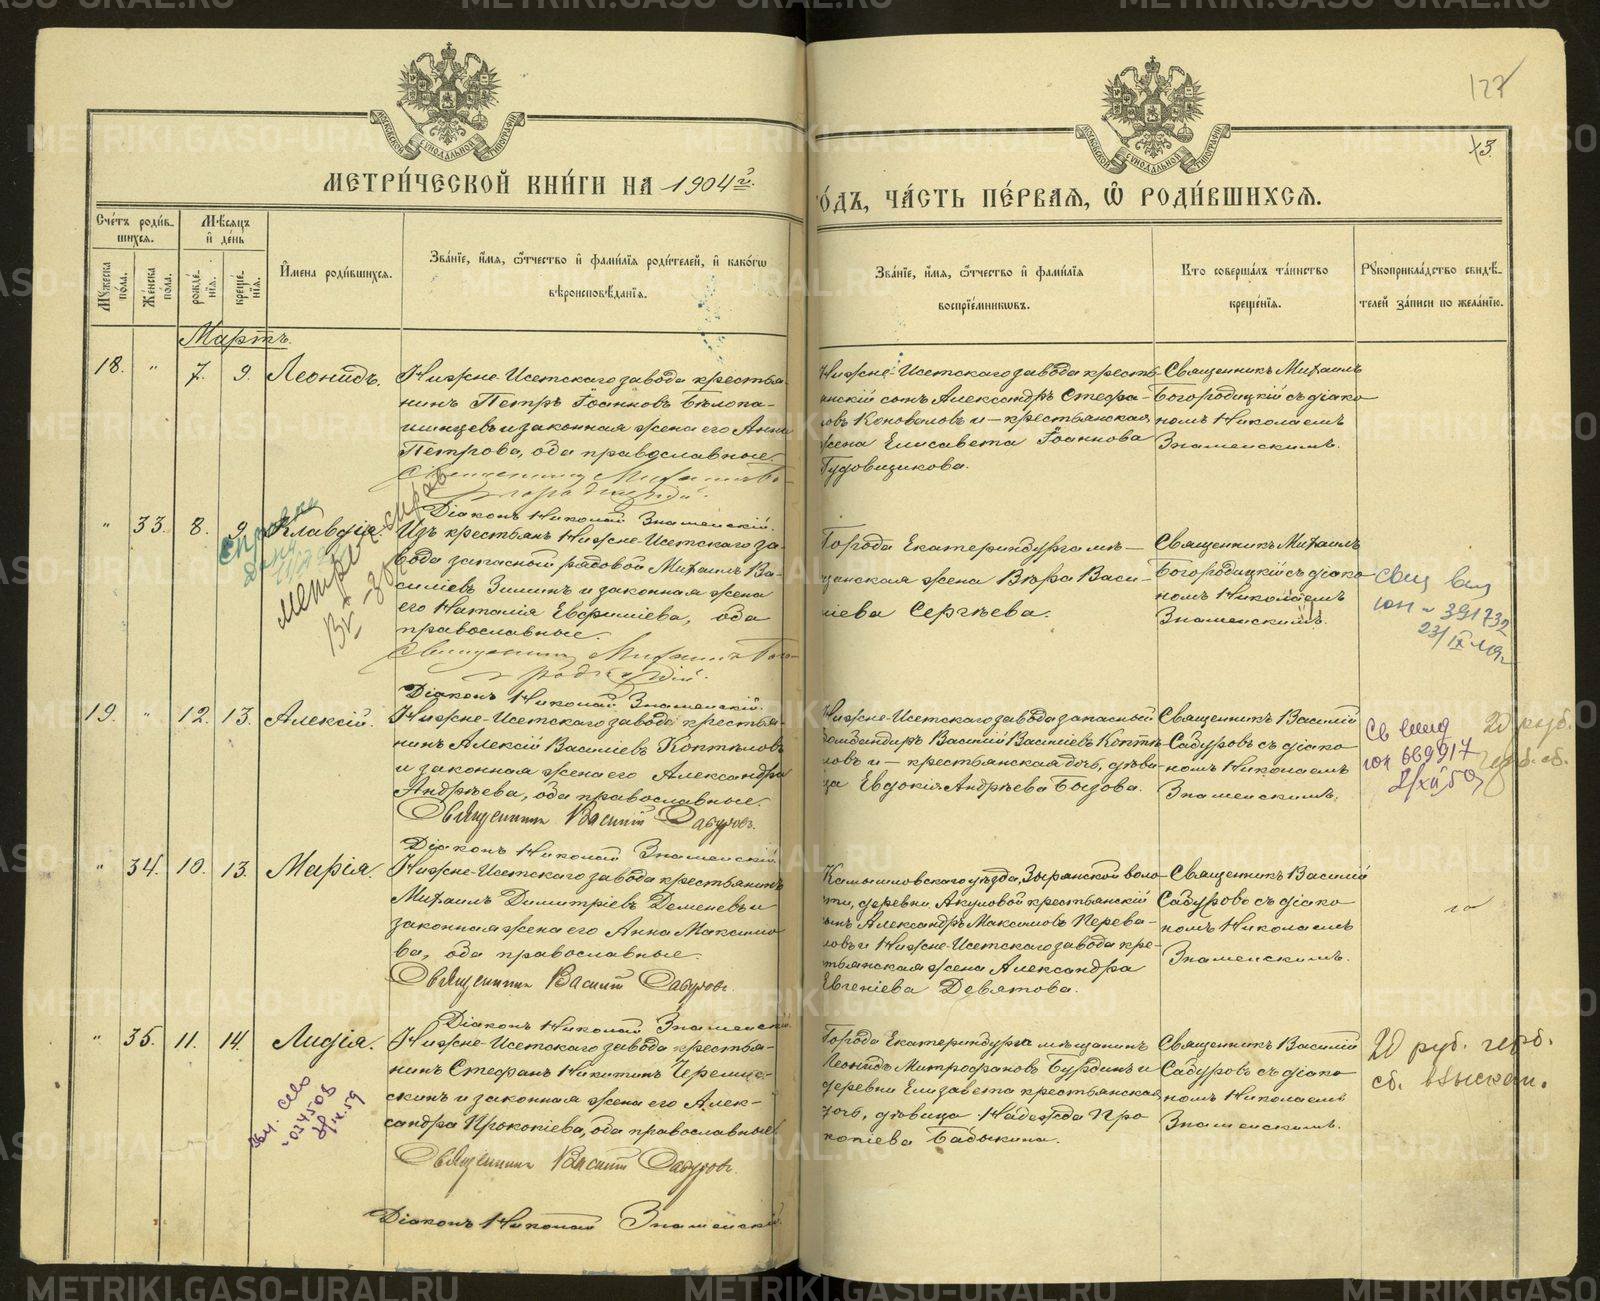 127
13.
МЕТРИ́ЧЕСКОЙ КНИ́ГИ НА 1904й.
О́ДЪ, ЧА́СТЬ ПЕ́РВАЯ, Ѽ РОДИ́ВШИХСЯ.
Сче́тъ роди́в-
шихся.
Мѣ́сяцъ
и҆ де́нь
Му́жеска
по́ла.
Же́нска
пола.
рожде́-
нїя.
креще́-
нїя.
И҆мена роди́вшихся.
Зва́нїе, и҆́мя, ѻ҆́тчество и҆ фами́лїя роди́телей, и҆ како́гѡ
вѣроисповѣ́данїя.
Зва́нїе, и҆́мя, ѻ҆́тчество и҆ фами́лїя
воспрїе́мникѡвъ.
Кто соверша́лъ та́инство
креще́нїя.
Рꙋкоприкла́дство свидѣ́-
телей за́писи по жела́нїю.
Мартъ.
18. " 7. 9. Леонидъ.
Нижне-Исетскаго завода крестья-
нинъ Петръ Іоанновъ Бѣлопа-
шинцевъ и законная жена его Анна
Петрова, оба православные.
Священникъ Михаилъ Бо-
городицкій.
Діаконъ Николай Знаменскій.
Нижне-Исетскаго завода кресть-
янскій сынъ Александръ Стефа-
овъ Коноваловъ и - крестьянская
жена Елисавета Іоаннова
Гудовщикова.
Священникъ Михаилъ
Богородицкій съ діако-
номъ Николаемъ
Знаменскимъ.
" 33. 8. 9. Клавдія.
Изъ крестьянъ Нижне-Исетскаго за-
вода запасной рядовой Михаилъ Ва-
силіевъ Зиминъ и законная жена
его Наталія Евфиміева, оба
православные.
Священникъ Михаилъ Бого-
родицкій.
Діаконъ Николай Знаменскій.
Города Екатеринбурга мѣ-
щанская жена Вѣра Васи-
ліева Сергѣева.
Священникъ Михаилъ
Богородицкій съ діако-
номъ Николаемъ
Знаменскимъ.
391732
19. " 12. 13. Алексій.
Нижне-Исетскаго завода крестья-
нинъ Алексій Василіевъ Коптѣловъ
и законная жена его Александра
Андрѣева, оба православные.
Священникъ Василій Сабуровъ.
Діаконъ Николай Знаменскій.
Нижне-Исетскаго завода запасный
бомбандиръ Василій Василіевъ Коптѣ-
ловъ и - крестьянская дочь, дѣви-
ца Евдокія Андрѣева Бызова.
Священникъ Василій
Сабуровъ съ діако-
номъ Николаемъ
Знаменскимъ.
669917
20 руб.
герб. сб.
" 34. 10. 13. Марія.
Нижне-Исетскаго завода крестьянинъ
Михаилъ Димитріевъ Деменевъ и
законная жена его Анна Максимо-
ва, оба православные.
Священникъ Василій Сабуровъ.
Діаконъ Николай Знаменскій.
Камышловскаго уѣзда, Зырянской воло-
сти, деревни Акуловой крестьянскій
сынъ Александръ Максимовъ Перева-
ловъ и Нижне-Исетскаго завода кре-
стьянская жена Александра
Евгеніева Девятова.
Священникъ Василій
Сабуровъ съ діако-
номъ Николаемъ
Знаменскимъ.
" 35. 11. 14. Лидія.
Нижне-Исетскаго завода крестья-
нинъ Стефанъ Никитинъ Черемис-
скинъ и законная жена его Алек-
сандра Прокопіева, оба православные.
Священникъ Василій Сабуровъ.
Діаконъ Николай Знаменскій.
Города Екатеринбурга мѣщанинъ
Леонидъ Митрофановъ Бурдинъ и
деревни Елизавета крестьянская
дочь, дѣвица Надежда Про-
копіева Бабыкина.
Священникъ Василій
Сабуровъ съ діако-
номъ Николаемъ
Знаменскимъ.
20 руб. герб.
сб. взыскан.
METRIKI.GASO-URAL.RU